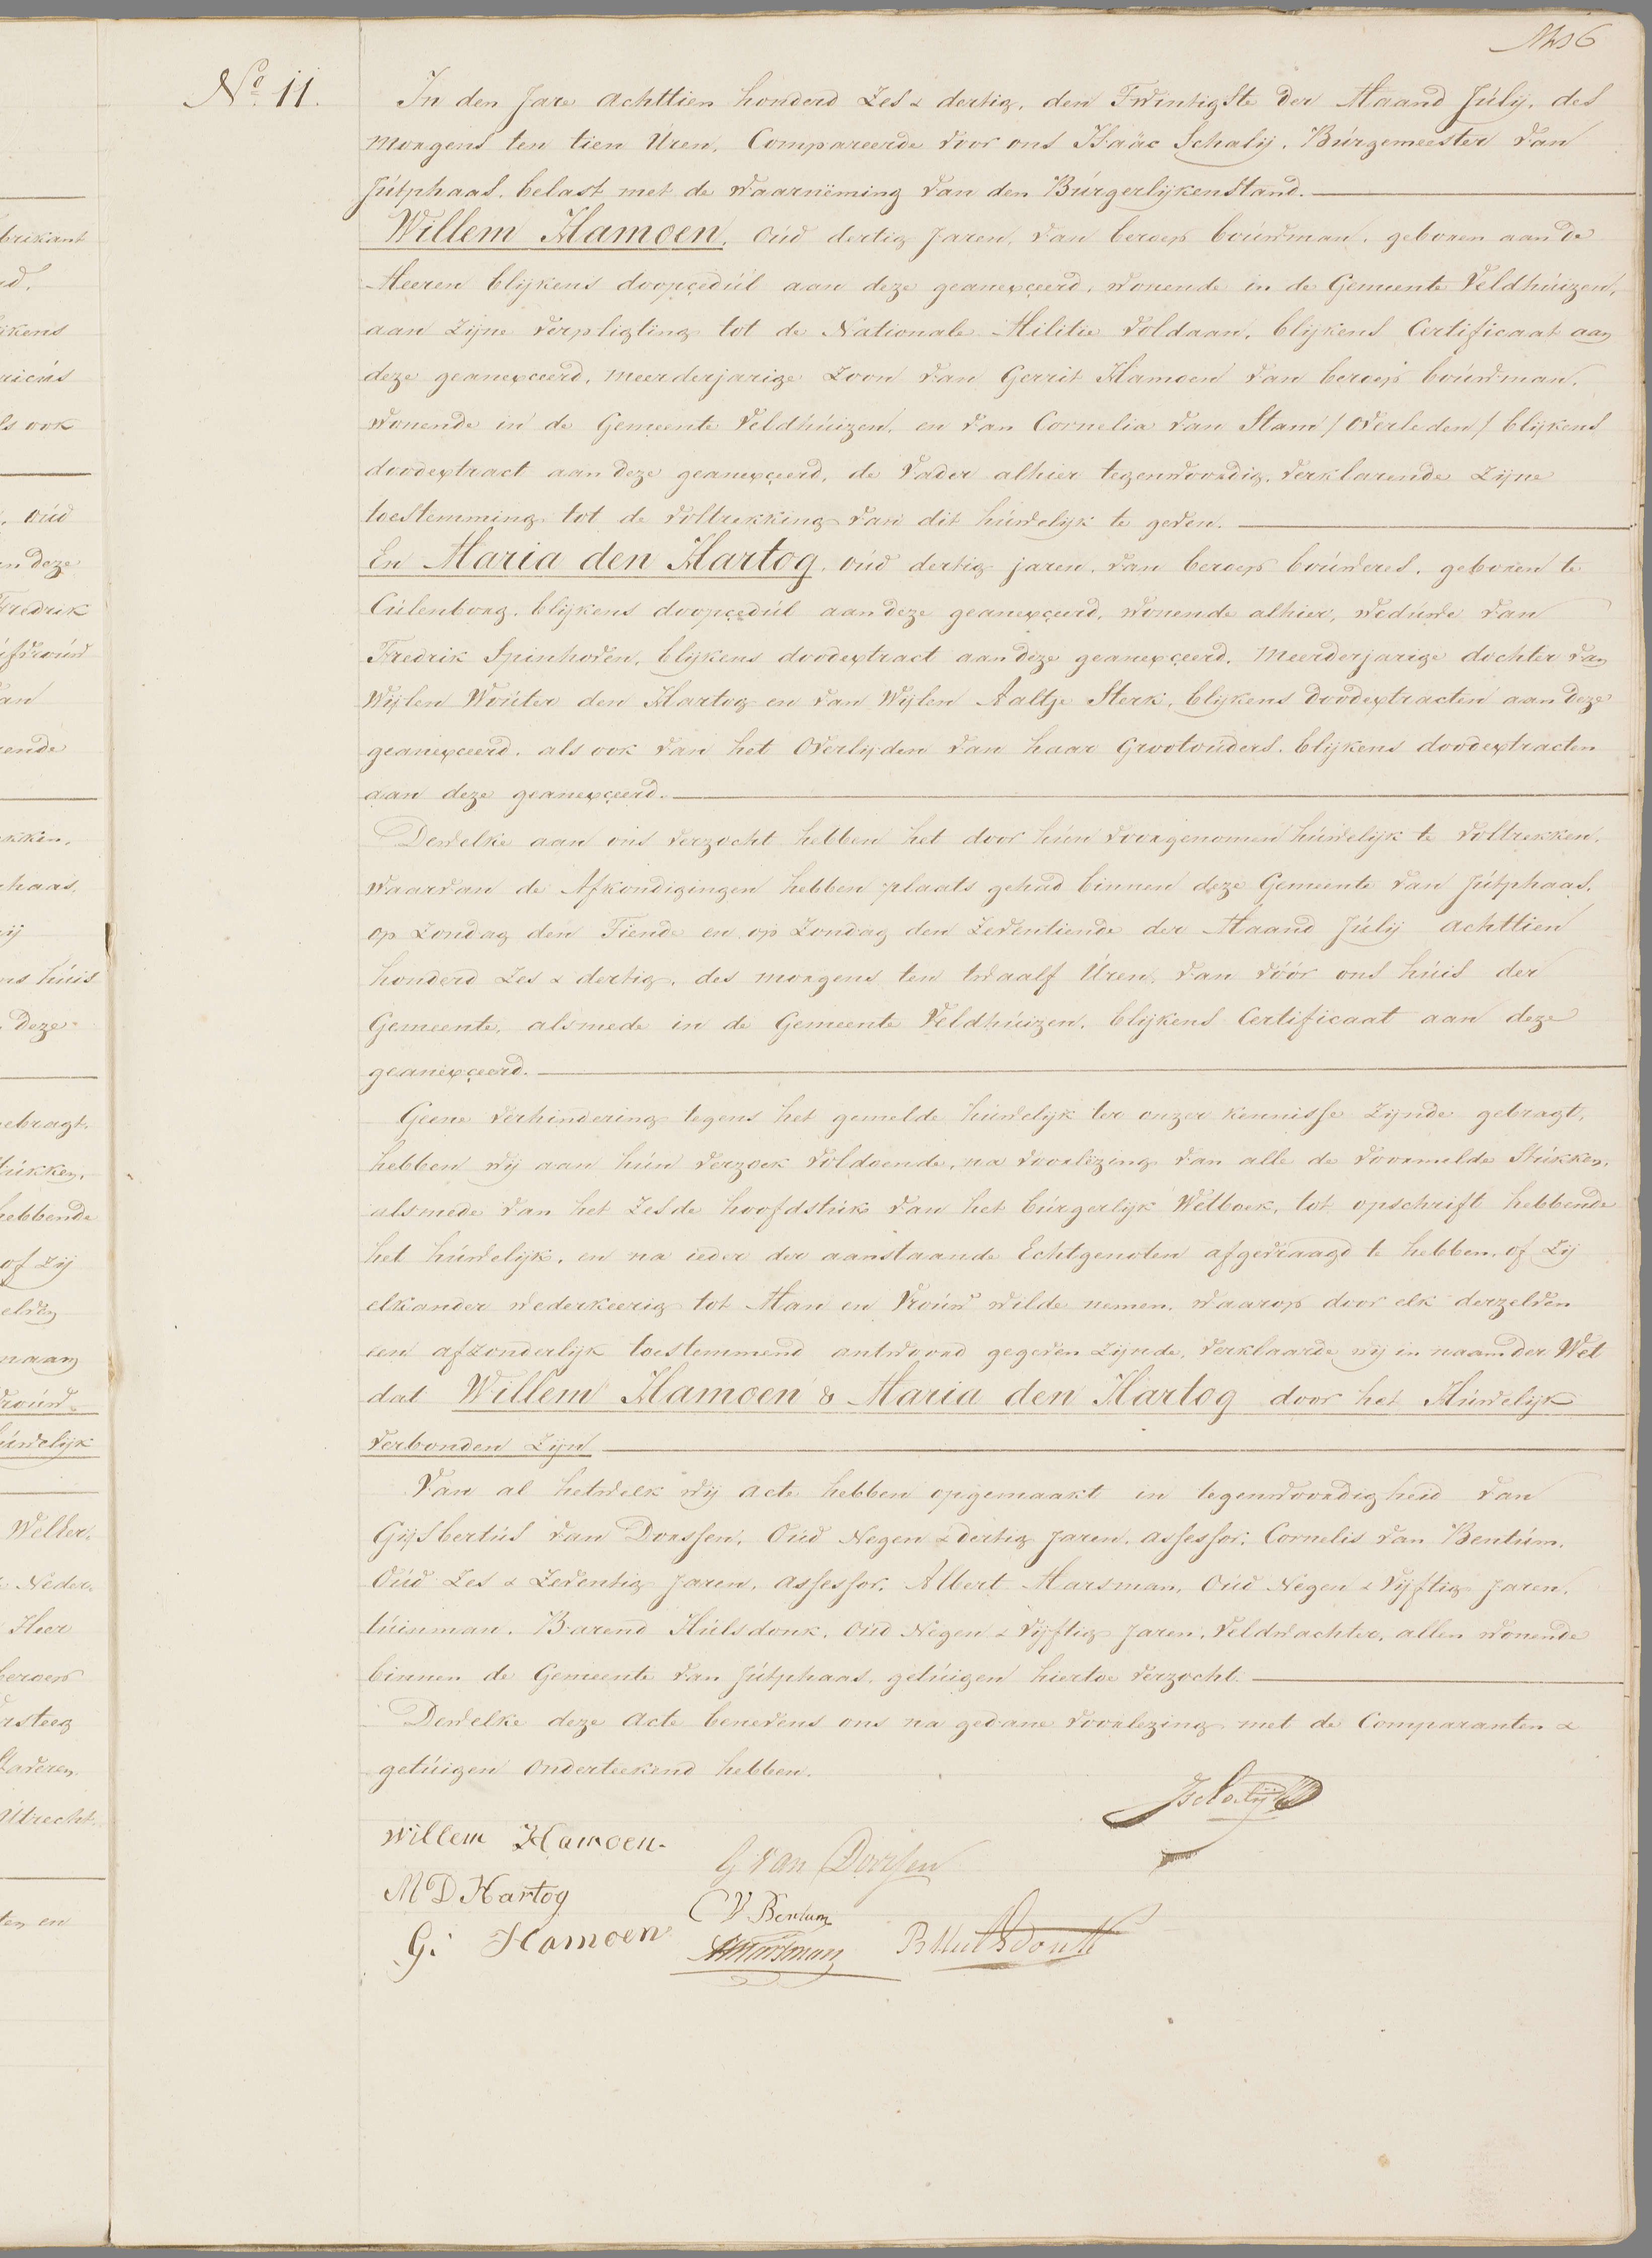 No. 11.
In den Jare achttien honderd Zes & dertig, den Twintigste der Maand Július, des
morgens ten tien Uren, Compareerde voor ons Isaäc Schalij, Burgemeester van
Jutphaas, belast met de waarneming van den Burgerlijken Stand.
Willem Hamoen, oud dertig Jaren, van beroep bouwman, geboren aan de
Meeren blijkens doopçedul aan deze geanexçeerd, wonende in de Gemeente Veldhuizen,
aan zijne verpligting tot de Nationale Militie voldaan, blijkens Certificaat aan
deze geanexceerd, meerderjarige Zoon van Gerrit Hamoen van beroep bouwman,
wonende in de Gemeente Veldhuizen, en van Cornelia van Stam / overleden / blijkens
doodextract aan deze geanexçeerd, de Vader alhier tegenwoordig, verklarende zijne
toestemming tot de voltrekking van dit huwelijk te geven.
En Maria den Hartog, oud dertig jaren, van beroep bouweres, geboren te
Culenborg, blijkens doopçedul aan deze geanexçeerd, wonende alhier, weduwe van
Fredrik Spinhoven, blijkens doodextract aan deze geanexçeerd, meerderjarige dochter van
Wijlen Wouter den Hartog en van Wijlen Aaltje Sterk, blijkens doodextracten aan deze
geanexceerd, als ook van het Overlijden van haar Grootouders, blijkens doodextracten
aan deze geanexçeerd.
Dewelke aan ons verzocht hebben het door hun voorgenomen huwelijk te voltrekken,
waarvan de Afkondigingen hebben plaats gehad binnen deze Gemeente van Jutphaas,
op Zondag den Tiende en op Zondag den Zeventiende der Maand Julij achttien
honderd Zes & dertig, des morgens ten twaalf Uren, van vóór ons huis der
Gemeente, alsmede in de Gemeente Veldhuizen, blijkens Certificaat aan deze
geanexçeerd.
Geene verhindering tegens het gemelde huwelijk ter onzer kennisse zijnde gebragt,
hebben wij aan hun verzoek voldoende, na voorlezing van alle de voormelde Stukken,
alsmede van het Zesde hoofdstuk van het burgerlijk Wetboek, tot opschrift hebbende
het huwelijk, en na ieder der aanstaande Echtgenoten afgevraagd te hebben, of Zij
elkander wederkeerig tot Man en Vrouw wilde nemen, waarop door elk derzelven
een afzonderlijk toestemmend antwoord gegeven zijnde, verklaarde wij in naam der Wet
dat Willem Hamoen & Maria den Hartog door het Huwelijk
verbonden Zijn
Van al hetwelk wij acte hebben opgemaakt in tegenwoordigheid van
Gijsbertus van Dorssen, Oud Negen & dertig Jaren, assessor, Cornelis van Bentum,
Oud Zes & Zeventig Jaren, assessor, Albert Marsman, Oud Negen & Vijftig Jaren,
tuinman, Barend Hulsdonk, Oud Negen & Vijftig Jaren, Veldwachter, allen wonende
binnen de Gemeente van Jutphaas, getuigen hiertoe verzocht.
Dewelke deze acte benevens ons na gedane voorlezing met de Comparanten &
getuigen onderteekend hebben.
JSchalij
Willem Hamoen
G van Dorssen
M D Hartog
C V Bentum
G. Hamoen
AMarsman
B Hulsdonk